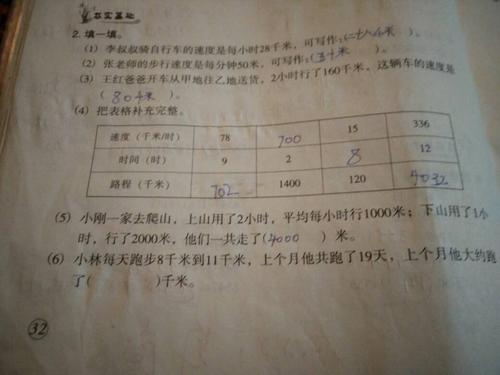 夯实基础
2. 填一填。
(1) 李叔叔骑自行车的速度是每小时28千米，可写作:(二十八千米)。
(2) 张老师的步行速度是每分钟50米，可写作:( 千米 )。
(3) 王红爸爸开车从甲地往乙地送货，2小时行了160千米，这辆车的速度是
( 80千米 )。
(4) 把表格补充完整。
速度（千米/时） 78 700 15 336
时间（时） 9 2 8 12
路程（千米） 702 1400 120 4032
(5) 小刚一家去爬山，上山用了2小时，平均每小时行1000米；下山用了1小
时，行了2000米，他们一共走了(4000 )米。
(6) 小林每天跑步8千米到11千米，上个月他共跑了19天，上个月他大约跑
了( )千米。
32